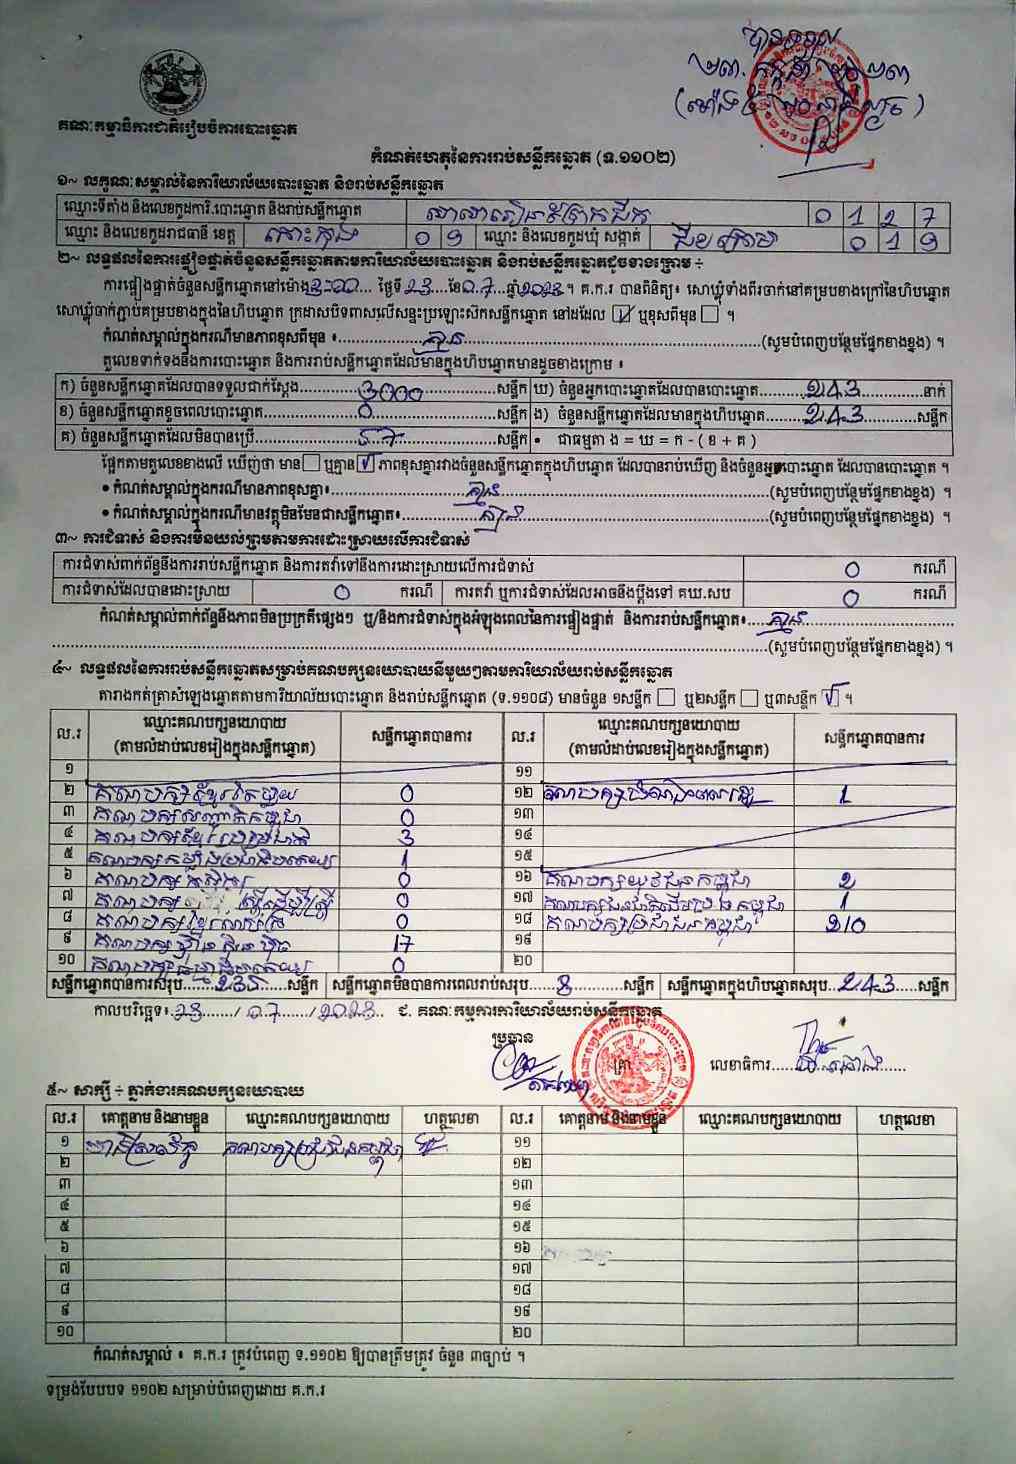 បានទទួល
គណៈកម្មាធិការជាតិរៀបចំការបោះឆ្នោត
កំណត់ហេតុនៃការរាប់សន្លឹកឆ្នោត (ទ.១១០២)
១~ លក្ខណៈសម្គាល់នៃការិយាល័យបោះឆ្នោត និងរាប់សន្លឹកឆ្នោត
ឈ្មោះទីតាំង និងលេខកូដការិ.បោះឆ្នោត និងរាប់សន្លឹកឆ្នោត សាលារៀនព្រែកជីក 0 1 2 7
ឈ្មោះ និងលេខកូដរាជធានី ខេត្ត កោះកុង 0 9 ឈ្មោះ និងលេខកូដឃុំ សង្កាត់ ជីខក្រោម 0 1 9
២~ លទ្ធផលនៃការផ្ទៀងផ្ទាត់ចំនួនសន្លឹកឆ្នោតតាមការិយាល័យបោះឆ្នោត និងរាប់សន្លឹកឆ្នោតដូចខាងក្រោម ÷
ការផ្ទៀងផ្ទាត់ចំនួនសន្លឹកឆ្នោតនៅម៉ោង 3:00 ថ្ងៃទី 23 ខែ 0.7 ឆ្នាំ 2023 ។ គ.ក.រ បានពិនិត្យ៖ សោឃ្លុំទាំងពីរចាក់នៅគម្របខាងក្រៅនៃហិបឆ្នោត
សោឃ្លុំចាក់ភ្ជាប់គម្របខាងក្នុងនៃហិបឆ្នោត ក្រដាសបិទពាសលើសន្ទះប្រឡោះសិកសន្លឹកឆ្នោត នៅដដែល ☑ ឬខុសពីមុន ☐ ។
កំណត់សម្គាល់ក្នុងករណីមានភាពខុសពីមុន ៖ គ្មាន (សូមបំពេញបន្ថែមផ្នែកខាងខ្នង) ។
តួលេខទាក់ទងនឹងការបោះឆ្នោត និងការរាប់សន្លឹកឆ្នោតដែលមានក្នុងហិបឆ្នោតមានដូចខាងក្រោម ៖
ក) ចំនួនសន្លឹកឆ្នោតដែលបានទទួលជាក់ស្តែង 3000 សន្លឹក ឃ) ចំនួនអ្នកបោះឆ្នោតដែលបានបោះឆ្នោត 243 នាក់
ខ) ចំនួនសន្លឹកឆ្នោតខូចពេលបោះឆ្នោត 0 សន្លឹក ង) ចំនួនសន្លឹកឆ្នោតដែលមានក្នុងហិបឆ្នោត 243 សន្លឹក
គ) ចំនួនសន្លឹកឆ្នោតដែលមិនបានប្រើ 57 សន្លឹក • ជាធម្មតា ង = ឃ = ក - ( ខ + គ )
ផ្អែកតាមតួលេខខាងលើ ឃើញថា មាន ☐ ឬគ្មាន ☑ ភាពខុសគ្នារវាងចំនួនសន្លឹកឆ្នោតក្នុងហិបឆ្នោត ដែលបានរាប់ឃើញ និងចំនួនអ្នកបោះឆ្នោត ដែលបានបោះឆ្នោត ។
• កំណត់សម្គាល់ក្នុងករណីមានភាពខុសគ្នា៖ គ្មាន (សូមបំពេញបន្ថែមផ្នែកខាងខ្នង) ។
• កំណត់សម្គាល់ក្នុងករណីមានវត្ថុមិនមែនជាសន្លឹកឆ្នោត៖ គ្មាន (សូមបំពេញបន្ថែមផ្នែកខាងខ្នង) ។
៣~ ការជំទាស់ និងការមិនយល់ព្រមតាមការដោះស្រាយលើការជំទាស់
ការជំទាស់ពាក់ព័ន្ធនឹងការរាប់សន្លឹកឆ្នោត និងការតវ៉ាទៅនឹងការដោះស្រាយលើការជំទាស់ 0 ករណី
ការជំទាស់ដែលបានដោះស្រាយ 0 ករណី ការតវ៉ា ឬការជំទាស់ដែលអាចនឹងប្តឹងទៅ គឃ.សប 0 ករណី
កំណត់សម្គាល់ពាក់ព័ន្ធនឹងភាពមិនប្រក្រតីផ្សេងៗ ឬ/និងការជំទាស់ក្នុងអំឡុងពេលនៃការផ្ទៀងផ្ទាត់ និងការរាប់សន្លឹកឆ្នោត៖ គ្មាន
(សូមបំពេញបន្ថែមផ្នែកខាងខ្នង) ។
៤~ លទ្ធផលនៃការរាប់សន្លឹកឆ្នោតសម្រាប់គណបក្សនយោបាយនីមួយៗតាមការិយាល័យរាប់សន្លឹកឆ្នោត
តារាងកត់ត្រាសំឡេងឆ្នោតតាមការិយាល័យបោះឆ្នោត និងរាប់សន្លឹកឆ្នោត (ទ.១១០៨) មានចំនួន ១សន្លឹក ☐ ឬ២សន្លឹក ☐ ឬ៣សន្លឹក ☑ ។
ល.រ ឈ្មោះគណបក្សនយោបាយ (តាមលំដាប់លេខរៀងក្នុងសន្លឹកឆ្នោត) សន្លឹកឆ្នោតបានការ ល.រ ឈ្មោះគណបក្សនយោបាយ (តាមលំដាប់លេខរៀងក្នុងសន្លឹកឆ្នោត) សន្លឹកឆ្នោតបានការ
១ ១១
២ គណបក្សខ្មែរតែមួយ 0 ១២ គណបក្ស 1
៣ គណបក្សសញ្ជាតិកម្ពុជា 0 ១៣
៤ គណបក្សខ្មែររួបរួមជាតិ 3 ១៤
៥ គណបក្សកម្លាំងប្រជាធិបតេយ្យ 1 ១៥
៦ គណបក្សកសិករ 0 ១៦ គណបក្សយុវជនកម្ពុជា 2
៧ គណបក្សស្ត្រីដើម្បីស្ត្រី 0 ១៧ គណបក្សជនជាតិដើមប្រជាកម្ពុជា 1
៨ គណបក្ស 0 ១៨ គណបក្សប្រជាជនកម្ពុជា 210
៩ គណបក្សហ្វ៊ុនស៊ិនប៉ិច 17 ១៩
១០ គណបក្សធម្មាធិបតេយ្យ 0 ២០
សន្លឹកឆ្នោតបានការសរុប 235 សន្លឹក សន្លឹកឆ្នោតមិនបានការពេលរាប់សរុប 8 សន្លឹក សន្លឹកឆ្នោតក្នុងហិបឆ្នោតសរុប 243 សន្លឹក
កាលបរិច្ឆេទ៖ 23 / 07 / 2023 ជ. គណៈកម្មការការិយាល័យរាប់សន្លឹកឆ្នោត
ប្រធាន ត្រា លេខាធិការ
៥~ សាក្សី ÷ ភ្នាក់ងារគណបក្សនយោបាយ
ល.រ គោត្តនាម និងនាមខ្លួន ឈ្មោះគណបក្សនយោបាយ ហត្ថលេខា ល.រ គោត្តនាម និងនាមខ្លួន ឈ្មោះគណបក្សនយោបាយ ហត្ថលេខា
១ គណបក្សប្រជាជនកម្ពុជា ១១
២ ១២
៣ ១៣
៤ ១៤
៥ ១៥
៦ ១៦
៧ ១៧
៨ ១៨
៩ ១៩
១០ ២០
កំណត់សម្គាល់ ៖ គ.ក.រ ត្រូវបំពេញ ទ.១១០២ ឱ្យបានត្រឹមត្រូវ ចំនួន ៣ច្បាប់ ។
ទម្រង់បែបបទ ១១០២ សម្រាប់បំពេញដោយ គ.ក.រ